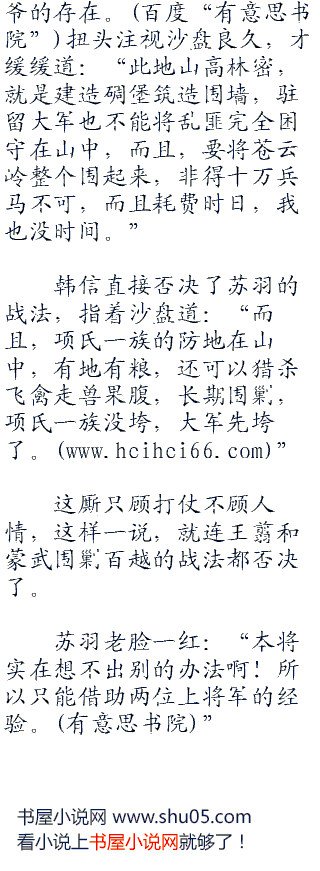 爷的存在。(百度“有意思书
院”)扭头注视沙盘良久，才
缓缓道：“此地山高林密，
就是建造碉堡筑造围墙，驻
留大军也不能将乱匪完全困
守在山中，而且，要将苍云
岭整个围起来，非得十万兵
马不可，而且耗费时日，我
也没时间。”
韩信直接否决了苏羽的
战法，指着沙盘道：“而
且，项氏一族的防地在山
中，有地有粮，还可以猎杀
飞禽走兽果腹，长期围剿，
项氏一族没垮，大军先垮
了。(www.hcihci66.com)”
这厮只顾打仗不顾人
情，这样一说，就连王翦和
蒙武围剿百越的战法都否决
了。
苏羽老脸一红：“本将
实在想不出别的办法啊！所
以只能借助两位上将军的经
验。(有意思书院)”
书屋小说网 www.shu05.com
看小说上书屋小说网就够了！